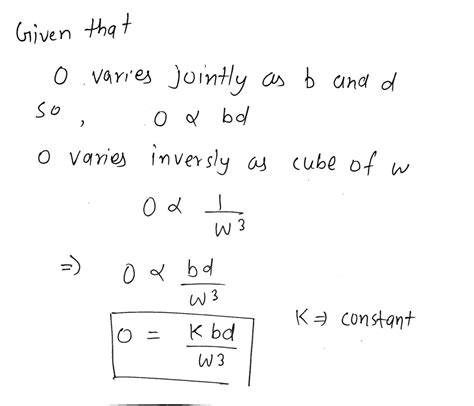 Given that
O varies jointly as b and d
so, O α bd
O varies inversly as cube of w
O α 1/w3
⇒) O α bd/w3
O = K bd/w3
K ⇒ constant